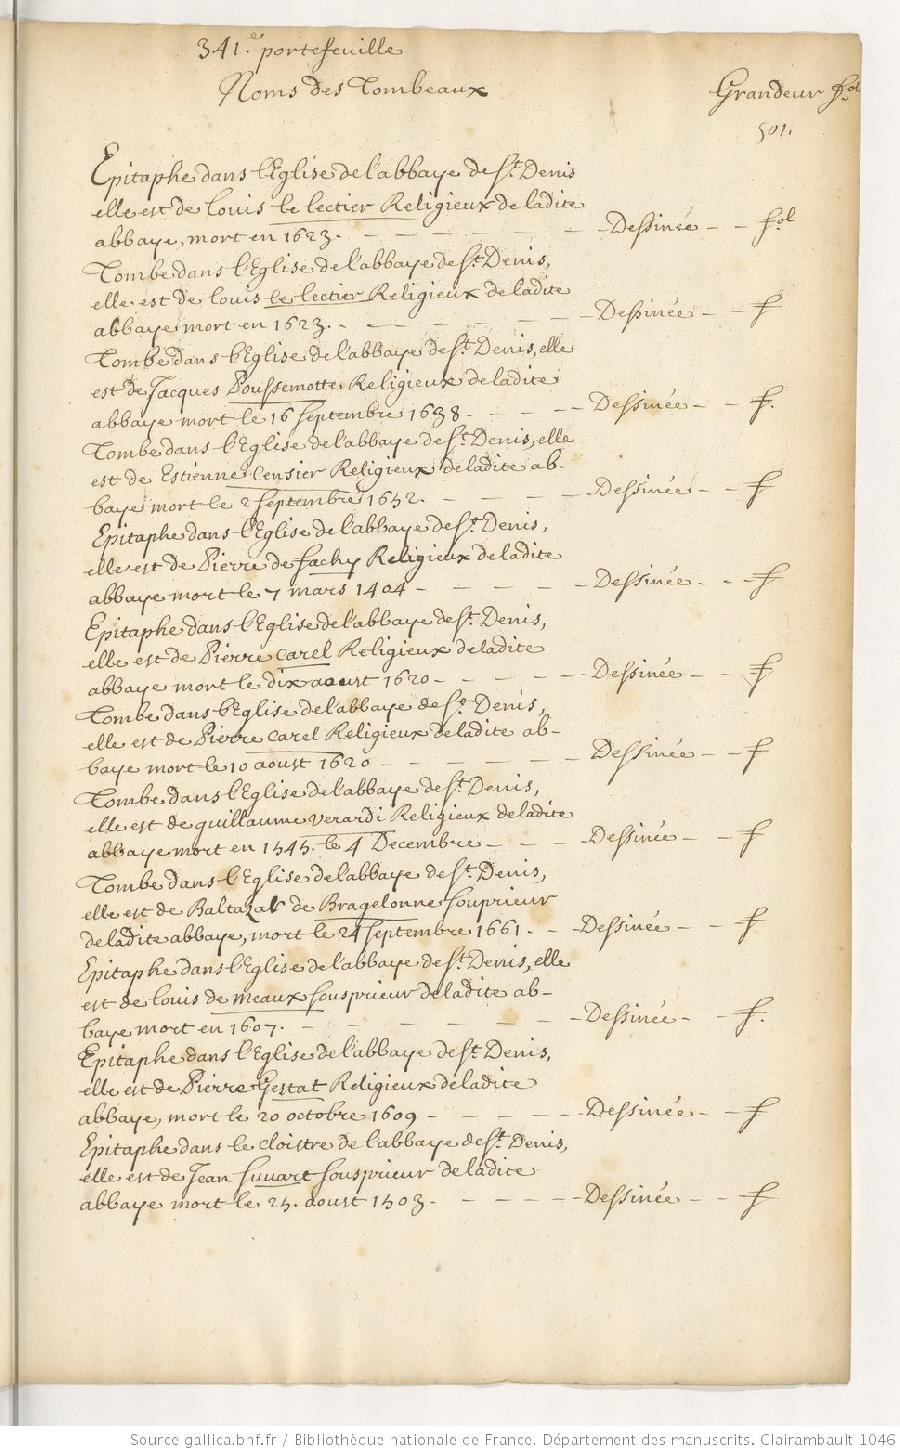 341.e portefeuille
Noms des Tombeaux
Grandeur fol
501.
Epitaphe dans l'Eglise de l'abbaye de St. Denis
elle est de Louis le lectier Religieux de ladite
abbaye, mort en 1623. - - - - - - Dessinée - - fol
Tombe dans l'Eglise de l'abbaye de St. Denis,
elle est de Louis le lectier Religieux de ladite
abbaye mort en 1623. - - - - - - Dessinée - - f
Tombe dans l'Eglise de l'abbaye de St. Denis, elle
est de Jacques Poussemotte Religieux de ladite
abbaye mort le 16 septembre 1638. - - - Dessinée - - f.
Tombe dans l'Eglise de l'abbaye de St. Denis, elle
est de Estienne Censier Religieux de ladite ab-
baye mort le 2 septembre 1652. - - - - Dessinée - - f
Epitaphe dans l'Eglise de l'abbaye de St. Denis,
elle est de Pierre de sachy Religieux de ladite
abbaye mort le 7 mars 1404 - - - - - Dessinée - - f
Epitaphe dans l'Eglise de l'abbaye de St. Denis,
elle est de Pierre carel Religieux de ladite
abbaye mort le dix aoust 1620 - - - - - Dessinée - - f
Tombe dans l'Eglise de l'abbaye de St. Denis,
elle est de Pierre carel Religieux de ladite ab-
baye mort le 10 aoust 1620 - - - - - Dessinée - - f
Tombe dans l'Eglise de l'abbaye de St. Denis,
elle est de guillaume verardi Religieux de ladite
abbaye mort en 1545. le 4 Decembre - - - Dessinée - - f
Tombe dans l'Eglise de l'abbaye de St. Denis,
elle est de Baltazar de Bragelonne souprieur
de ladite abbaye, mort le 24 septembre 1661. - - Dessinée - - f
Epitaphe dans l'Eglise de l'abbaye de St. Denis, elle
est de Louis de meaux sousprieur de ladite ab-
baye mort en 1607. - - - - - - Dessinée - - f.
Epitaphe dans l'Eglise de l'abbaye de St. Denis,
elle est de Pierre Gestat Religieux de ladite
abbaye, mort le 20 octobre 1609 - - - - Dessinée - - f
Epitaphe dans le cloistre de l'abbaye de St. Denis,
elle est de Jean suuart sousprieur de ladite
abbaye mort le 25. aoust 1503. - - - - Dessinée - - f
Source gallica.bnf.fr / Bibliothèque nationale de France. Département des manuscrits. Clairambault 1046